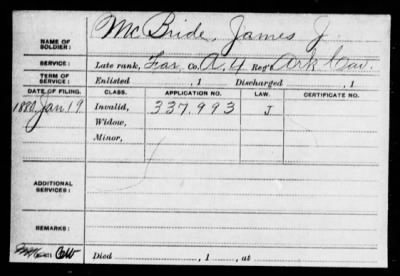 NAME OF SOLDIER: McBride, James J.
SERVICE: Late rank, Far, Co. A, 4 Reg't Ark Cav.
TERM OF SERVICE: Enlisted , 1 Discharged , 1
DATE OF FILING. CLASS. APPLICATION NO. LAW. CERTIFICATE NO.
1880 Jan 19 Invalid, 337.993 J
Widow,
Minor,
ADDITIONAL SERVICES:
REMARKS:
Died , 1 , at